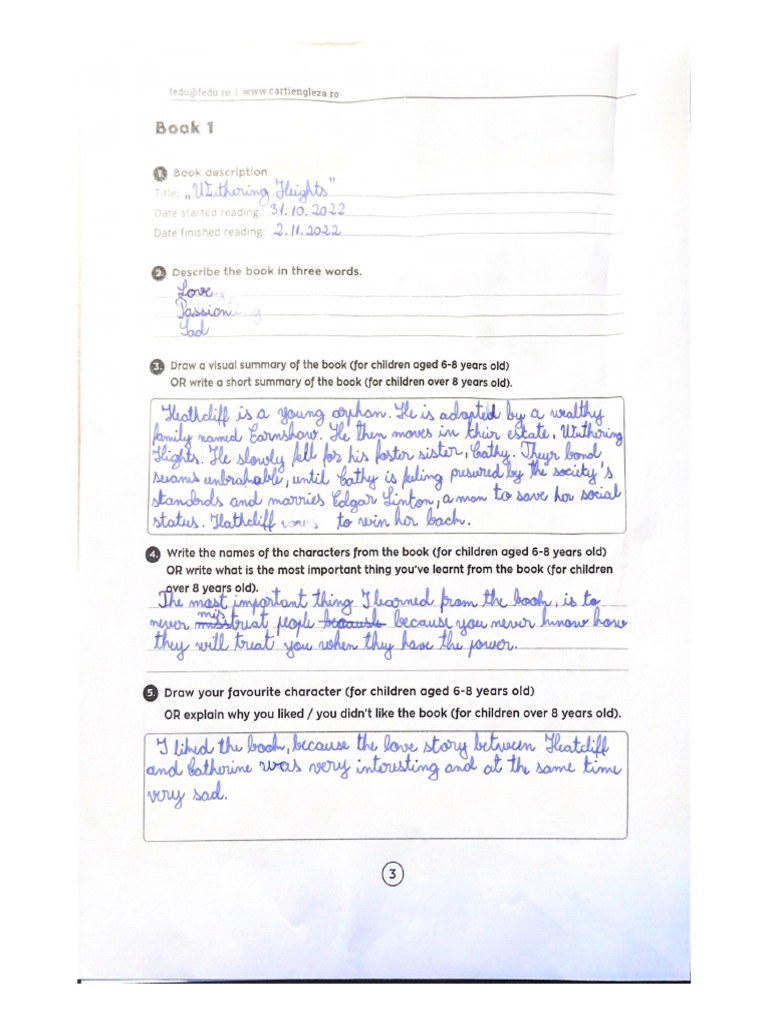 fedu@fedu.ro | www.cartiengleza.ro
Book 1
1. Book description
Title: „Wuthering Heights"
Date started reading: 31.10.2022
Date finished reading: 2.11.2022
2. Describe the book in three words.
Love
Passion
Sad
3. Draw a visual summary of the book (for children aged 6-8 years old)
OR write a short summary of the book (for children over 8 years old).
Heathcliff is a young orphan. He is adopted by a wealthy
family named Earnshow. He then moves in their estate, Wuthering
Hights. He slowly fell for his foster sister, Cathy. Theyr bond
seams unbrahable, until Cathy is feling presured by the society's
standords and marries Edgar Linton, a man to save her social
status. Hathcliff vows to win her back.
4. Write the names of the characters from the book (for children aged 6-8 years old)
OR write what is the most important thing you've learnt from the book (for children
over 8 years old).
The most important thing I learned from the book, is to
never mistriat people because because you never know how
they will treat you when they have the power.
5. Draw your favourite character (for children aged 6-8 years old)
OR explain why you liked / you didn't like the book (for children over 8 years old).
I liked the book, because the love story between Heatcliff
and Catherine was very interesting and at the same time
very sad.
3